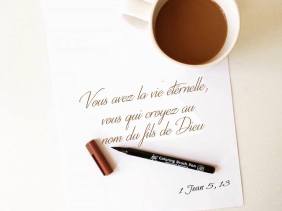 Vous avez la vie éternelle,
vous qui croyez au
nom du fils de Dieu
Coloring Brush Pen
1 Jean 5, 13